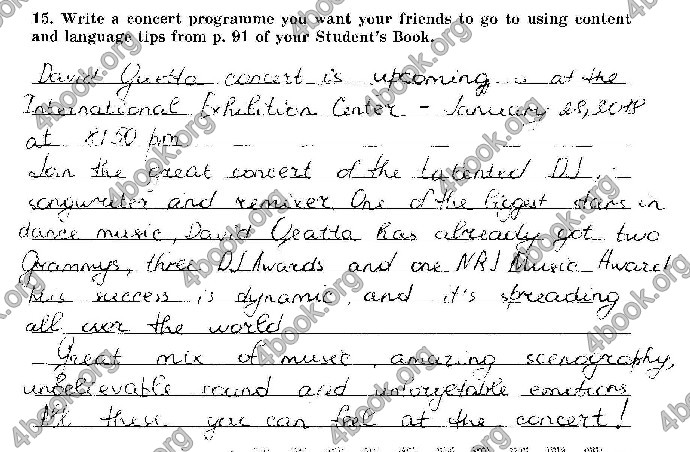 15. Write a concert programme you want your friends to go to using content
and language tips from p. 91 of your Student's Book.
David Guetta concert is upcoming is at the
International Exhibition Center - January 28, 2018
at 8:30 pm
Join the great concert of the talented DJ,
songwriter and remixer. One of the biggest stars in
dance music, David Geatta has already got two
Grammys, three DJ Awards and one NRJ Music Award
His success is dynamic, and it's spreading
all over the world
Great mix of music, amazing scenography,
unbelievable sound and unforgetable emotions
All these you can feel at the concert!
4book.org